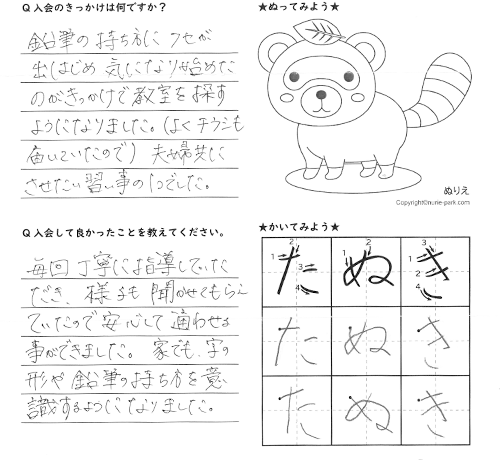 Q 入会のきっかけは何ですか？
鉛筆の持ち方に クセが
出はじめ 気になり始めた
のがきっかけで教室を探す
ようになりました。(よくチラシも
届いていたので) 夫婦共に
させたい習い事の1つでした。
Q 入会して良かったことを教えてください。
毎回 丁寧に指導していた
だき、様子も聞かせてもらえ
ていたので安心して通わせる
事ができました。家でも、字の
形や鉛筆の持ち方を意
識するようになりました。
★ぬってみよう★
ぬりえ
Copyright©nurie-park.com
★かいてみよう★
たぬき
たぬき
たぬき